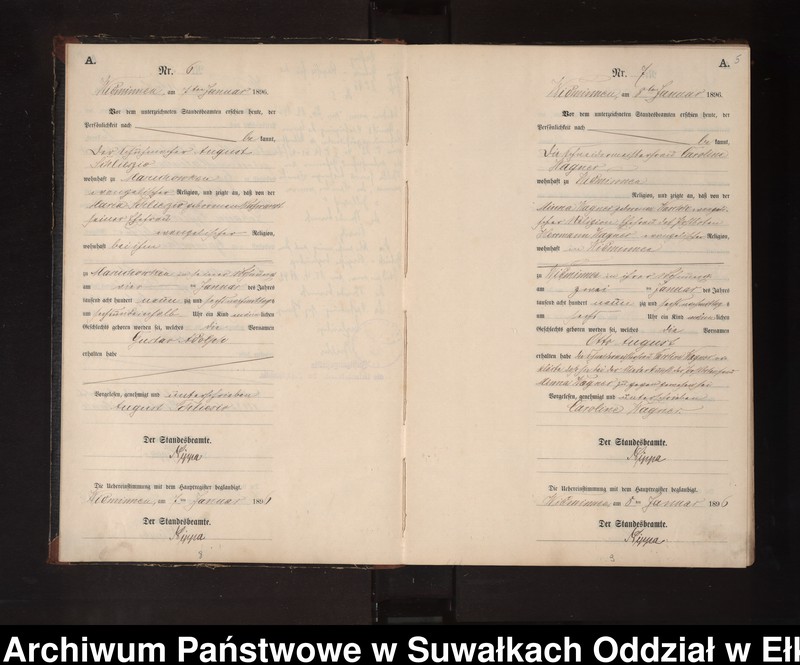 A.
Nr. 6
Widminnen, am 7ten Januar 1896.
Vor dem unterzeichneten Standesbeamten erschien heute, der
Persönlichkeit nach
be kannt,
Der August
wohnhaft zu
evangelischer Religion, und zeigte an, daß von der
Maria geborenen
seiner Ehefrau
evangelischer Religion,
wohnhaft bei ihm
zu in seiner Wohnung
am vier ten Januar des Jahres
tausend acht hundert neun zig und sechs
um Uhr ein Kind männlichen
Geschlechts geboren worden sei, welches die Vornamen
Gustav Adolph
erhalten habe
Vorgelesen, genehmigt und unterschrieben
August
Der Standesbeamte.
Nippa
Die Uebereinstimmung mit dem Hauptregister beglaubigt.
Widminnen, am 7ten Januar 189
Der Standesbeamte.
Nippa
8
A. 5
Nr. 7
Widminnen, am 8ten Januar 1896.
Vor dem unterzeichneten Standesbeamten erschien heute, der
Persönlichkeit nach
be kannt,
Die Caroline
Wagner
wohnhaft zu Widminnen
Religion, und zeigte an, daß von der
Minna Wagner geborenen
Religion Ehefrau des
Hermann Wagner evangelischer Religion,
wohnhaft in Widminnen
zu Widminnen in ihrer Wohnung
am zwei ten Januar des Jahres
tausend acht hundert neun zig und sechs
um sechs Uhr ein Kind männlichen
Geschlechts geboren worden sei, welches die Vornamen
Otto August
erhalten habe
Minna Wagner zugegen gewesen sei
Vorgelesen, genehmigt und unterschrieben
Caroline Wagner.
Der Standesbeamte.
Nippa
Die Uebereinstimmung mit dem Hauptregister beglaubigt.
Widminnen, am 8ten Januar 1896
Der Standesbeamte.
Nippa
9
Archiwum Państwowe w Suwałkach Oddział w Eł